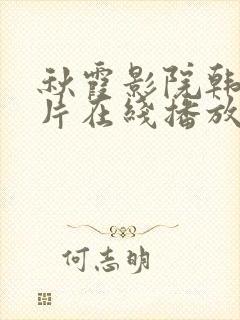 秋霞影院韩
片在线播放
何志明